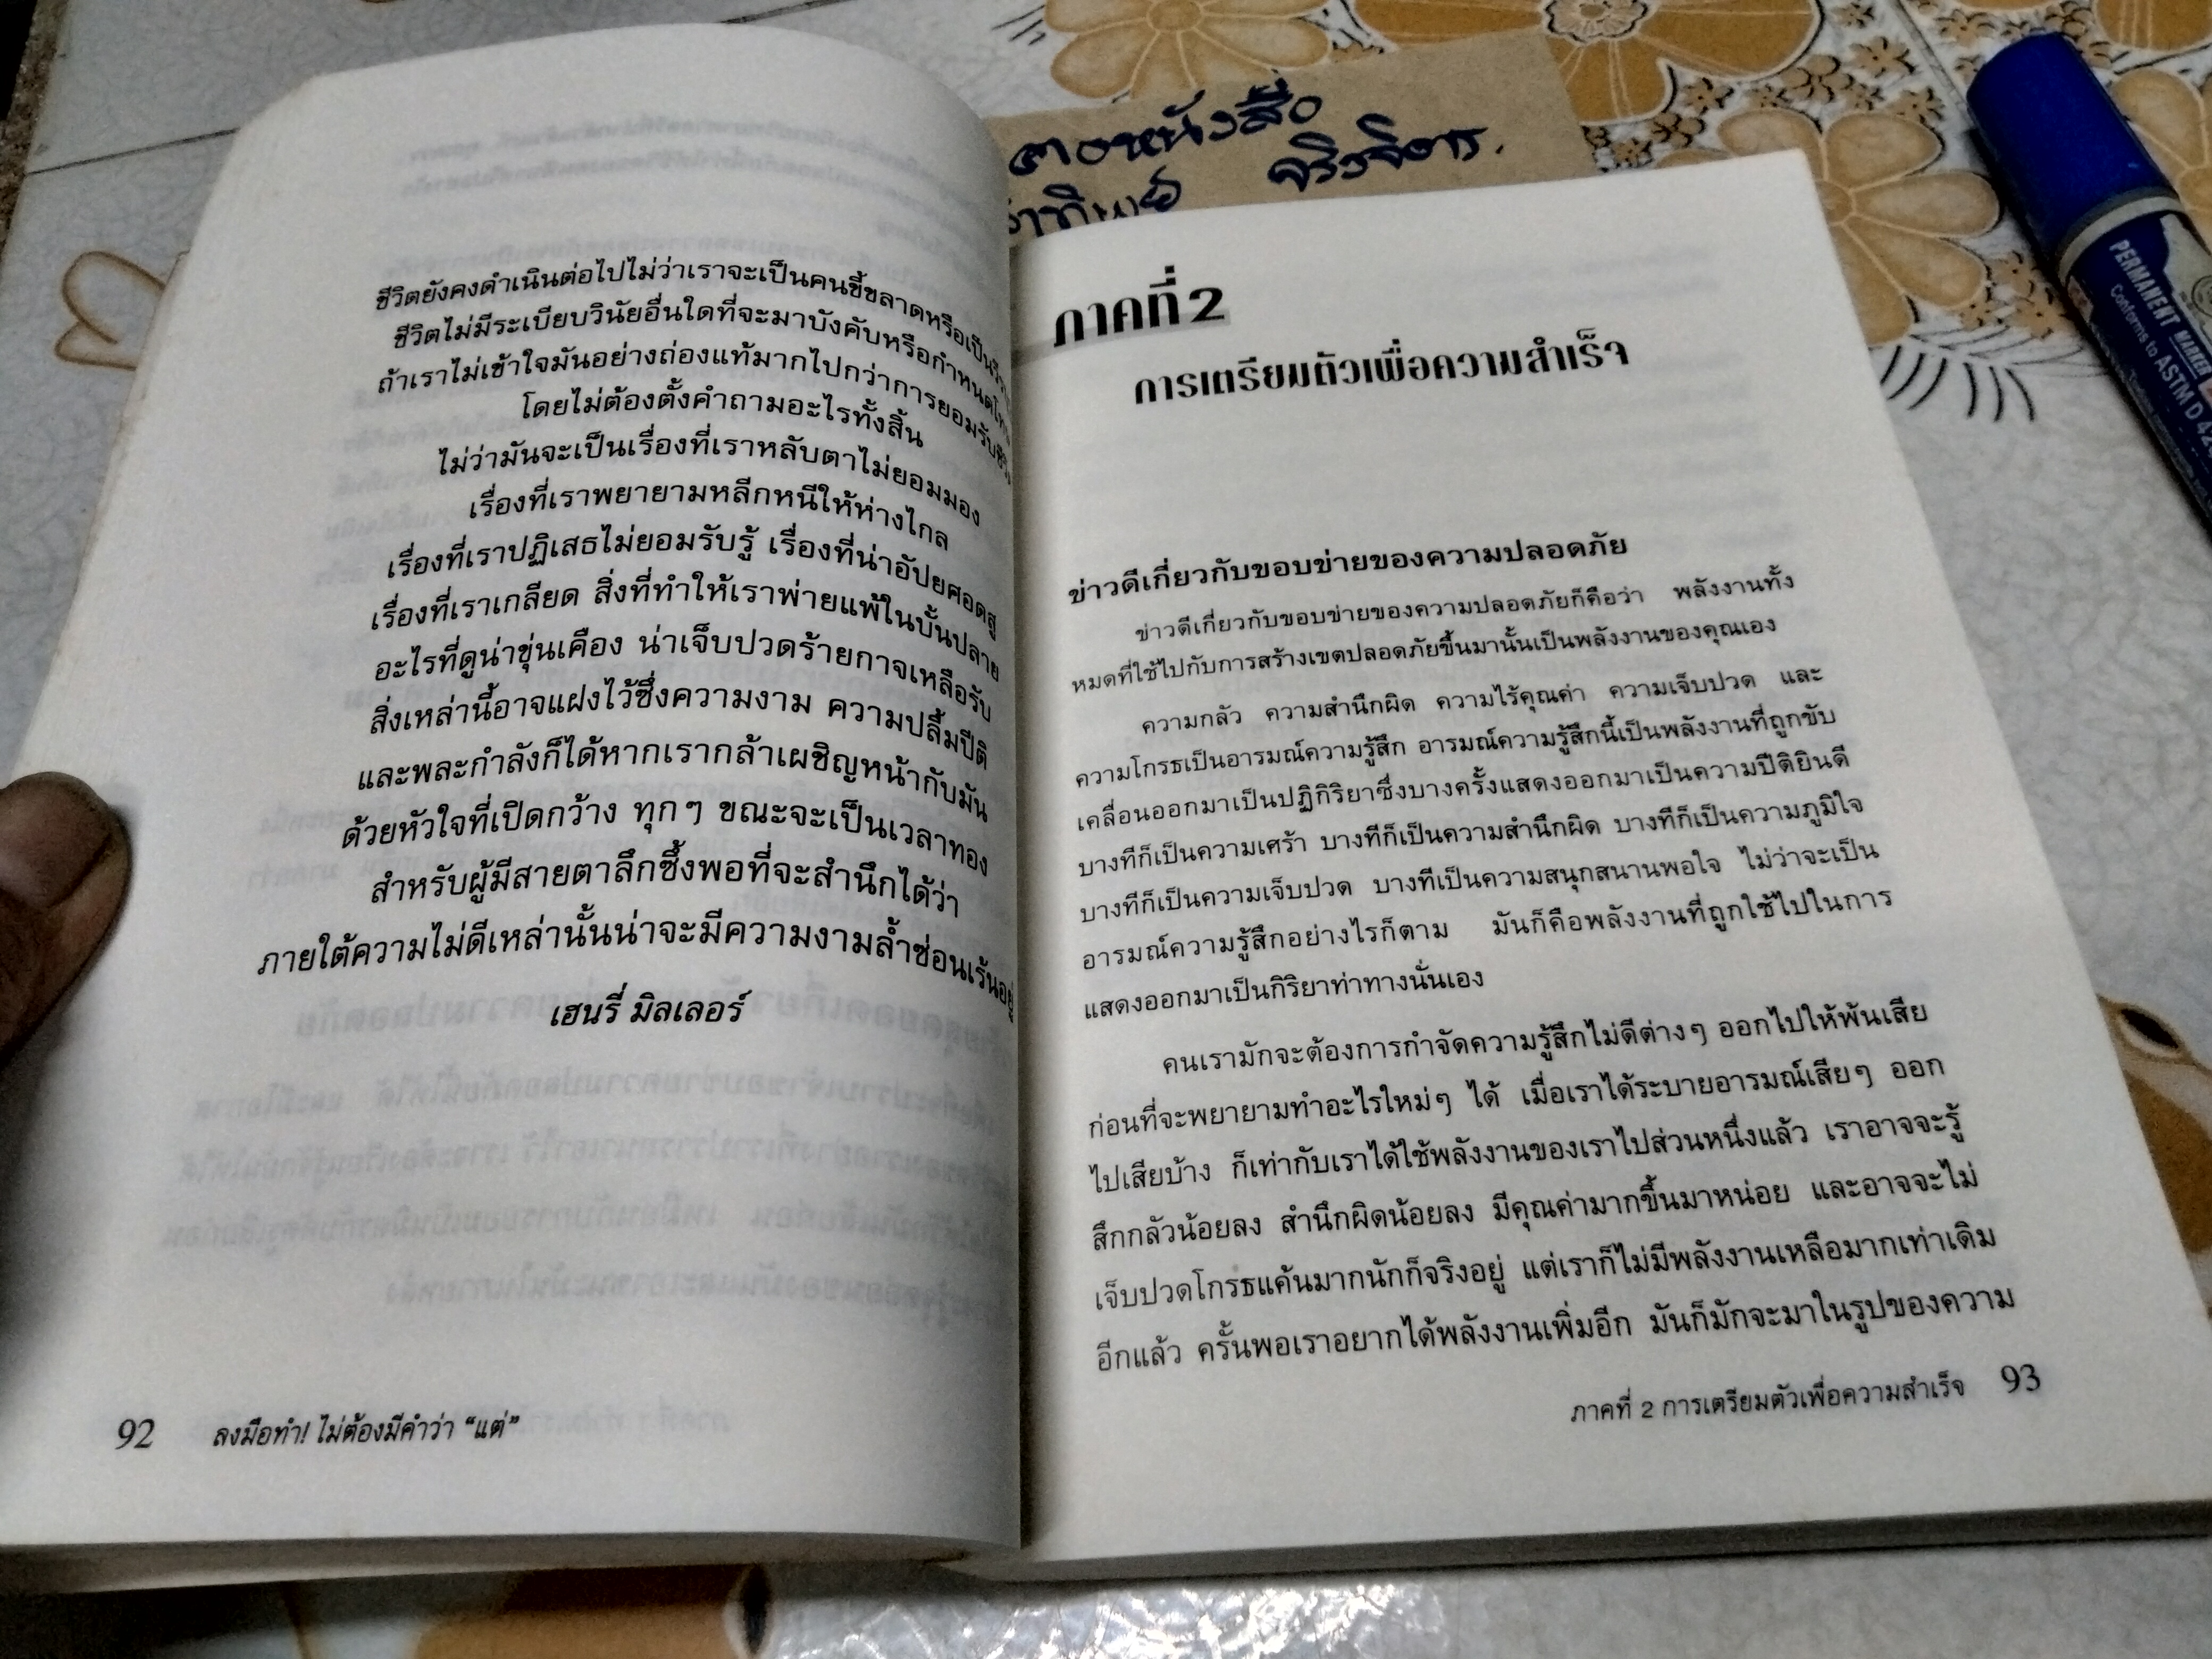 ชีวิตยังคงดำเนินต่อไปไม่ว่าเราจะเป็นคนขี้ขลาดหรือเป็น
ชีวิตไม่มีระเบียบวินัยอื่นใดที่จะมาบังคับหรือกำหนด
ถ้าเราไม่เข้าใจมันอย่างถ่องแท้มากไปกว่าการยอมรับ
โดยไม่ต้องตั้งคำถามอะไรทั้งสิ้น
ไม่ว่ามันจะเป็นเรื่องที่เราหลับตาไม่ยอมมอง
เรื่องที่เราพยายามหลีกหนีให้ห่างไกล
เรื่องที่เราปฏิเสธไม่ยอมรับรู้ เรื่องที่น่าอัปยศอดสู
เรื่องที่เราเกลียด สิ่งที่ทำให้เราพ่ายแพ้ในบั้นปลาย
อะไรที่ดูน่าขุ่นเคือง น่าเจ็บปวดร้ายกาจเหลือรับ
สิ่งเหล่านี้อาจแฝงไว้ซึ่งความงาม ความปลื้มปีติ
และพละกำลังก็ได้หากเรากล้าเผชิญหน้ากับมัน
ด้วยหัวใจที่เปิดกว้าง ทุกๆ ขณะจะเป็นเวลาทอง
สำหรับผู้มีสายตาลึกซึ้งพอที่จะสำนึกได้ว่า
ภายใต้ความไม่ดีเหล่านั้นน่าจะมีความงามล้ำซ่อนเร้นอยู่
เฮนรี่ มิลเลอร์
92 ลงมือทำ! ไม่ต้องมีคำว่า “แต่”
ภาคที่ 2
การเตรียมตัวเพื่อความสำเร็จ
ข่าวดีเกี่ยวกับขอบข่ายของความปลอดภัย
ข่าวดีเกี่ยวกับขอบข่ายของความปลอดภัยก็คือว่า พลังงานทั้ง
หมดที่ใช้ไปกับการสร้างเขตปลอดภัยขึ้นมานั้นเป็นพลังงานของคุณเอง
ความกลัว ความสำนึกผิด ความไร้คุณค่า ความเจ็บปวด และ
ความโกรธเป็นอารมณ์ความรู้สึก อารมณ์ความรู้สึกนี้เป็นพลังงานที่ถูกขับ
เคลื่อนออกมาเป็นปฏิกิริยาซึ่งบางครั้งแสดงออกมาเป็นความปีติยินดี
บางทีก็เป็นความเศร้า บางทีก็เป็นความสำนึกผิด บางทีก็เป็นความภูมิใจ
บางทีก็เป็นความเจ็บปวด บางทีเป็นความสนุกสนานพอใจ ไม่ว่าจะเป็น
อารมณ์ความรู้สึกอย่างไรก็ตาม มันก็คือพลังงานที่ถูกใช้ไปในการ
แสดงออกมาเป็นกิริยาท่าทางนั่นเอง
คนเรามักจะต้องการกำจัดความรู้สึกไม่ดีต่างๆ ออกไปให้พ้นเสีย
ก่อนที่จะพยายามทำอะไรใหม่ๆ ได้ เมื่อเราได้ระบายอารมณ์เสียๆ ออก
ไปเสียบ้าง ก็เท่ากับเราได้ใช้พลังงานของเราไปส่วนหนึ่งแล้ว เราอาจจะรู้
สึกกลัวน้อยลง สำนึกผิดน้อยลง มีคุณค่ามากขึ้นมาหน่อย และอาจจะไม่
เจ็บปวดโกรธแค้นมากนักก็จริงอยู่ แต่เราก็ไม่มีพลังงานเหลือมากเท่าเดิม
อีกแล้ว ครั้นพอเราอยากได้พลังงานเพิ่มอีก มันก็มักจะมาในรูปของความ
ภาคที่ 2 การเตรียมตัวเพื่อความสำเร็จ 93
PERMANENT MARKER
Conforms to ASTM D